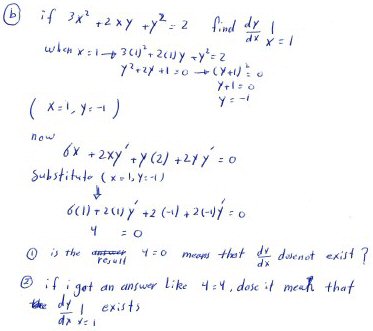 (b) if 3x² + 2xy + y² = 2 find dy/dx | x = 1
when x = 1 → 3(1)² + 2(1)y + y² = 2
y² + 2y + 1 = 0 → (y+1)² = 0
y + 1 = 0
y = -1
( x = 1, y = -1 )
now
6x + 2xy' + y(2) + 2yy' = 0
Substitute (x=1, y=-1)
↓
6(1) + 2(1)y' + 2(-1) + 2(-1)y' = 0
4 = 0
① is the result 4=0 means that dy/dx doesnot exist?
② if i got an answer like 4=4, dose it mean that
dy/dx | x=1 exists